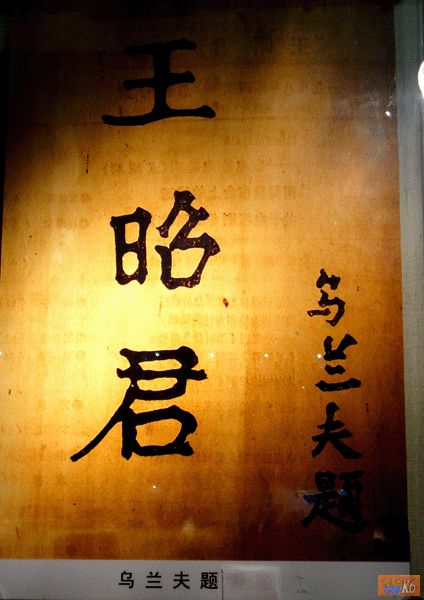 王昭君
乌兰夫题
乌兰夫题